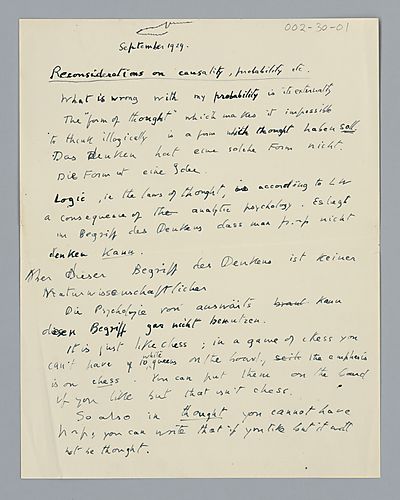 002-30-01
September 1929.
Reconsiderations on causality, probability etc.
What is wrong with my probability is its externality
The "form of thought" which makes it impossible
to think illogically is a form which thought haben soll.
Das Denken hat eine solche Form nicht.
Die Form ist eine Idee.
Logic, ie the laws of thought, is according to LW
a consequence of the analytic psychology. Es liegt
im Begriff des Denkens dass man p.~p nicht
denken kann.
Aber dieser Begriff des Denkens ist keiner
Naturwissenschaftlicher
Die Psychologie von auswärts kann
diesen Begriff gar nicht benutzen.
It is just like chess; in a game of chess you
can't have 10 white queens on the board, seite the emphasis
is on chess. You can put them on the board
if you like but that isn't chess.
So also in thought you cannot have
p.~p, you can write that if you like but it will
not be thought.